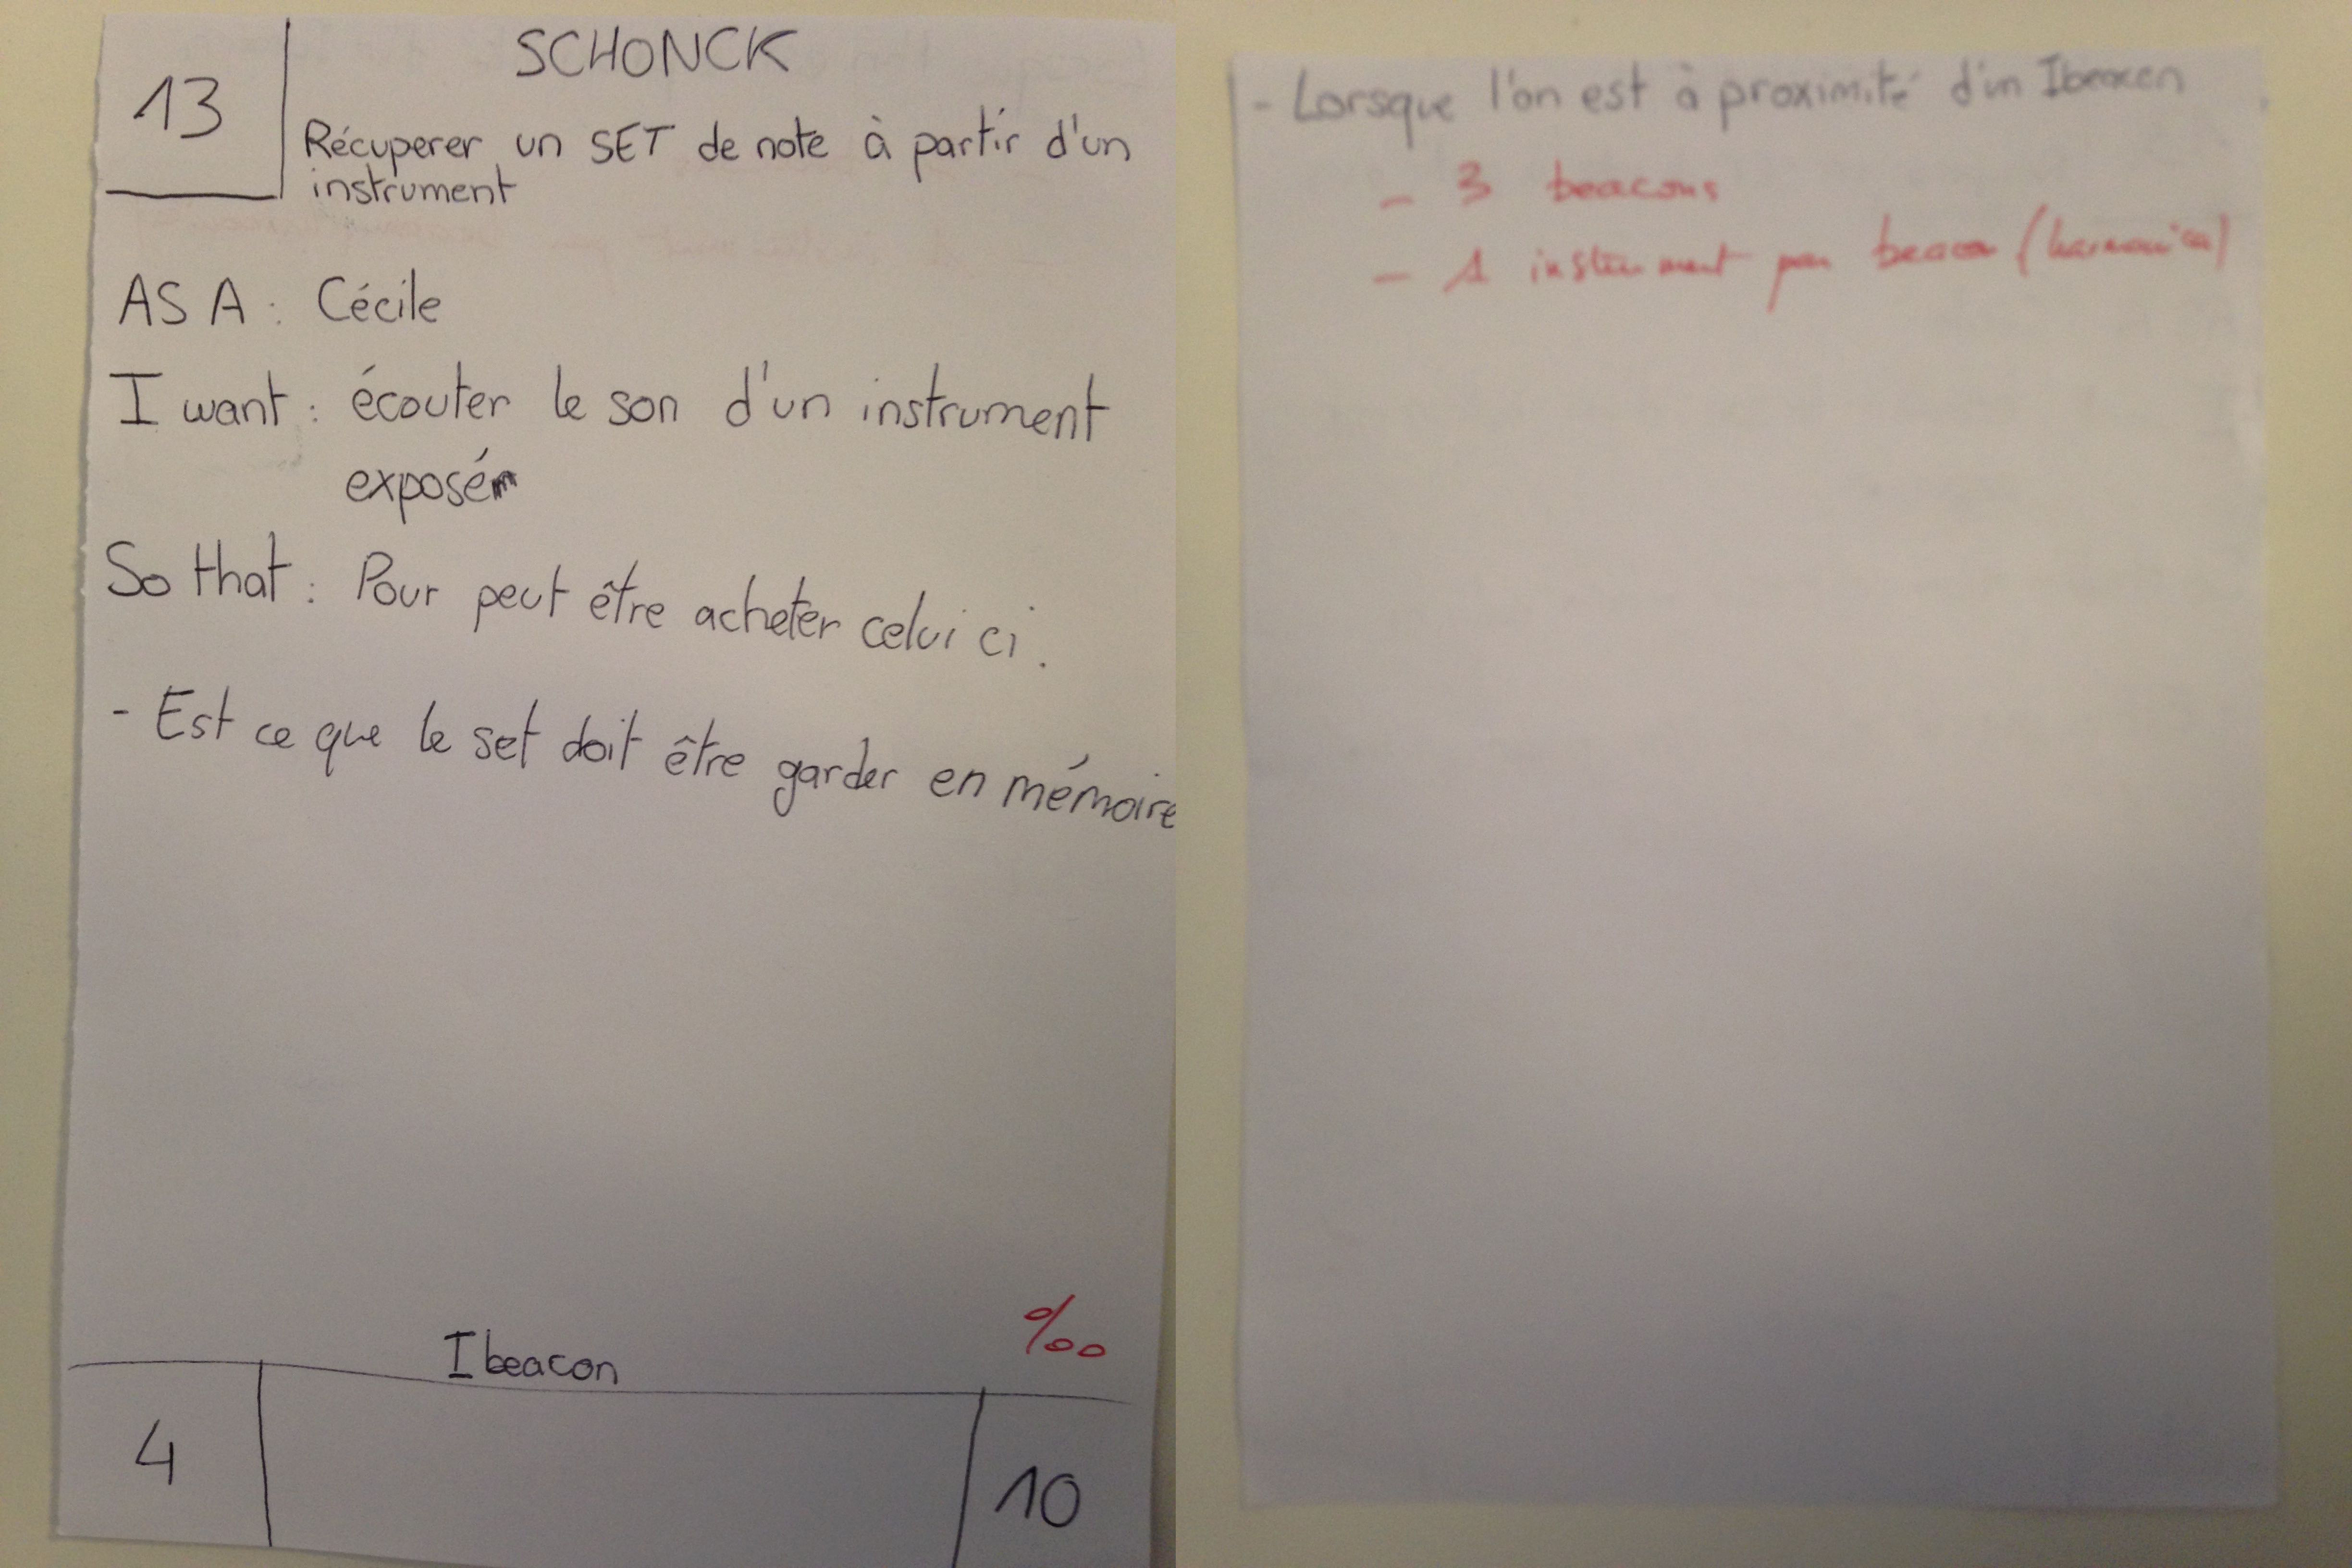 SCHONCK
13
Récuperer un SET de note à partir d'un
instrument
AS A : Cécile
I want : écouter le son d'un instrument
exposé
So that : Pour peut être acheter celui ci.
- Est ce que le set doit être garder en mémoire
Ibeacon
%00
4
10
- Lorsque l'on est à proximité d'un Ibeacon
- 3 beacons
- 1 instrument par beacon (harmonica)